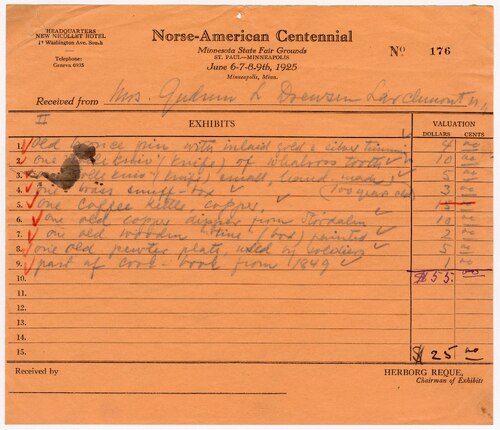 HEADQUARTERS
NEW NICOLLET HOTEL
17 Washington Ave. South
Telephone:
Geneva 6935
Norse-American Centennial
Minnesota State Fair Grounds
ST. PAUL—MINNEAPOLIS
June 6-7-8-9th, 1925
Minneapolis, Minn.
No 176
Received from Mrs. Gudrun L Drewsen Larchmont
II
EXHIBITS
VALUATION
DOLLARS CENTS
1. Old pin with inlaid gold & silver 4 00
2. One (knife) of Whalross tooth 10 00
3. (knife) small, hand made 5 00
4. One brass snuff-box (100 year old) 3 00
5. One coffee kettle, copper,
6. one old copper dipper from 10 00
7. one old wooden Tine (box) painted 2 00
8. one old pewter plate, used by soldiers 5 00
9. part of cook-book from 1849 1 00
10. $55.00
11.
12.
13.
14.
15. $25 00
Received by
HERBORG REQUE,
Chairman of Exhibits